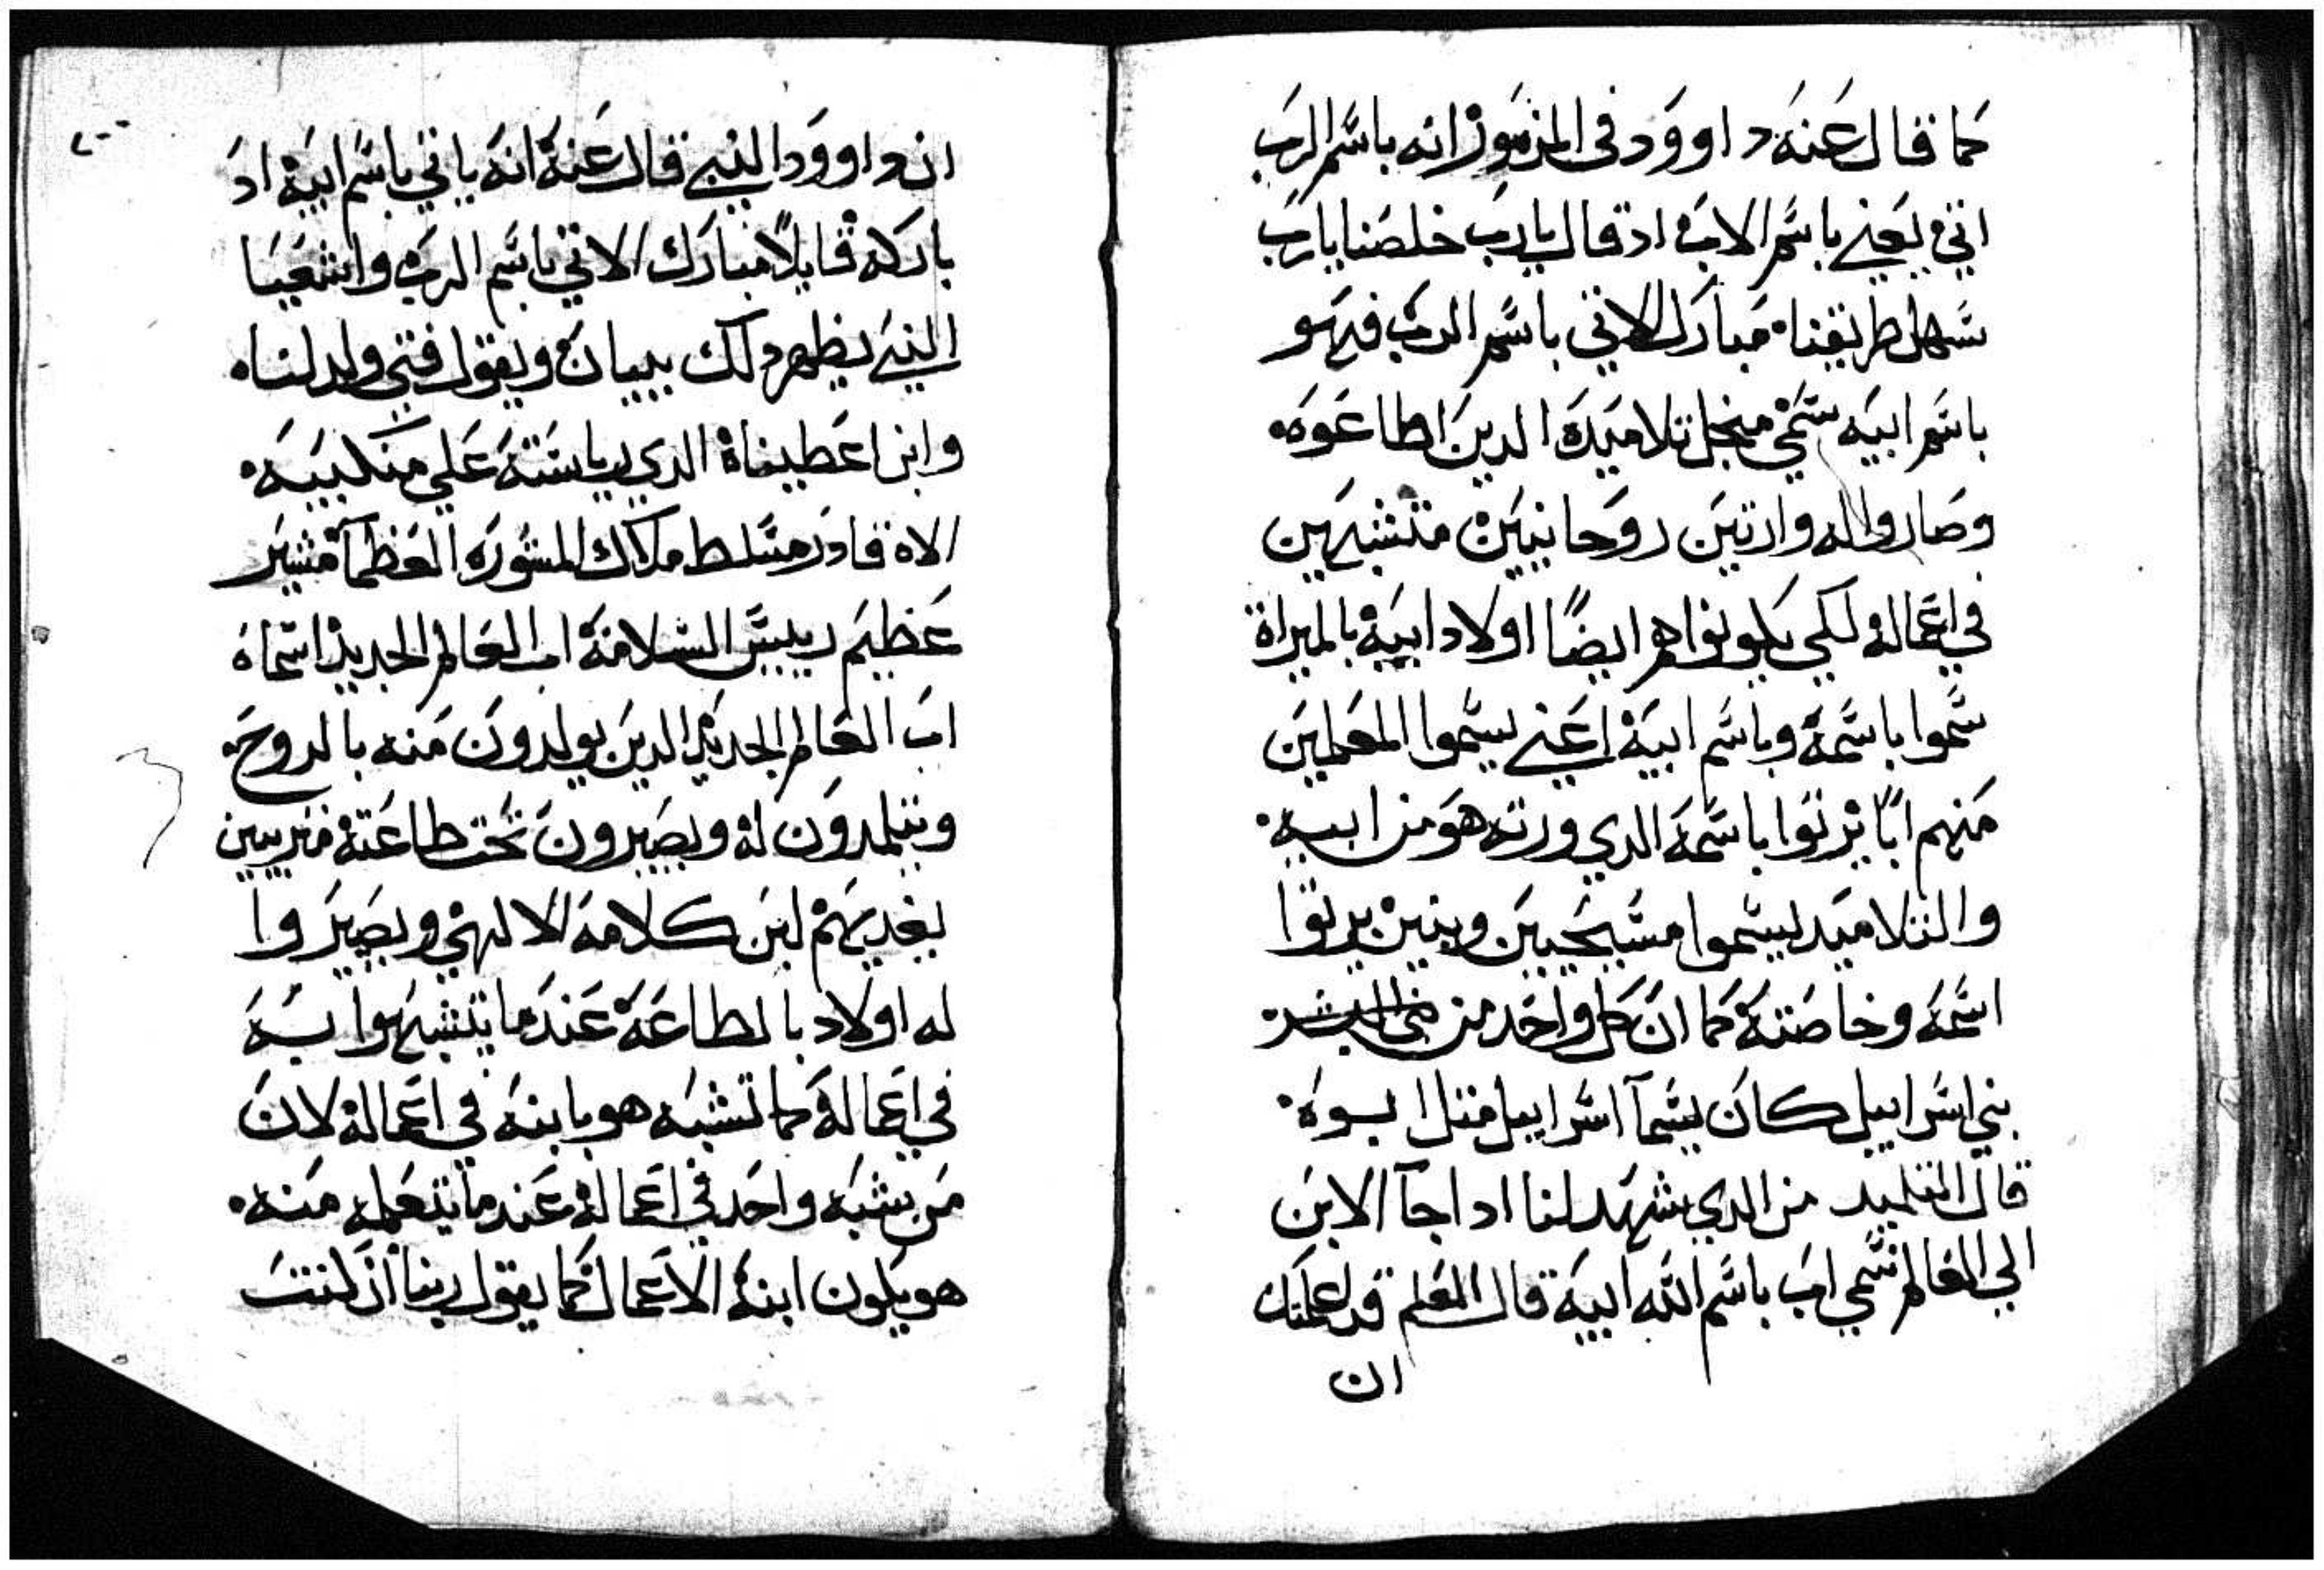 كما قال عنه داوود في المزمور انه باسم الرب
اتي يعني باسم الاب اد قال يارب خلصنا يارب
سهل طريقنا مبارك الاتي باسم الرب فهو
باسم ابيه سمي منجل تلاميده الدين اطاعوه
وصاروا له وارتين روحانيين متشبهين
في اعماله لكي يكونوا هم ايضًا اولاد ابيه بالميراة
سموا باسمه وباسم ابيه اعني يسموا المعلمين
منهم ابًا يرتوا باسمه الدي ورته هو من ابيه
والتلاميد ليسموا مسيحيين وبنين يرتوا
اسمه وخاصته كما ان كل واحد من
بني اسراييل كان يسمآ اسراييل متل ابوه
قال التلميد من الدي يشهد لنا ادا جآ الابن
الي العالم سمي اب باسم الله ابيه قال المعلم قد اعلمتك
ان
ان داوود النبي قال عنه انه ياتي باسم ابيه اد
باركه قايلاً مبارك الاتي باسم الرب واشعيا
النبي يظهر دلك ببيان ويقول فتي ولد لنا
وابن اعطيناه الدي رياسته علي منكبيه
الاه قادر مسلط ملاك المشوره العظمآ مشير
عظيم رييس السلامة اب العالم الجديد اسماه
اب العالم الجديد الدين يولدون منه بالروح
ويتلمدون له ويصيرون تحت طاعته متربيين
يغديهم لبن كلامه الالهي ويصيروا
له اولاد بالطاعة عند ما يتشبهوا به
في اعماله كما تشبه هو بابنه في اعماله لان
من يشبه واحد في اعماله عند ما يتعلم منه
هو يكون ابنه الاعمال كما يقول ربنا ان كنت